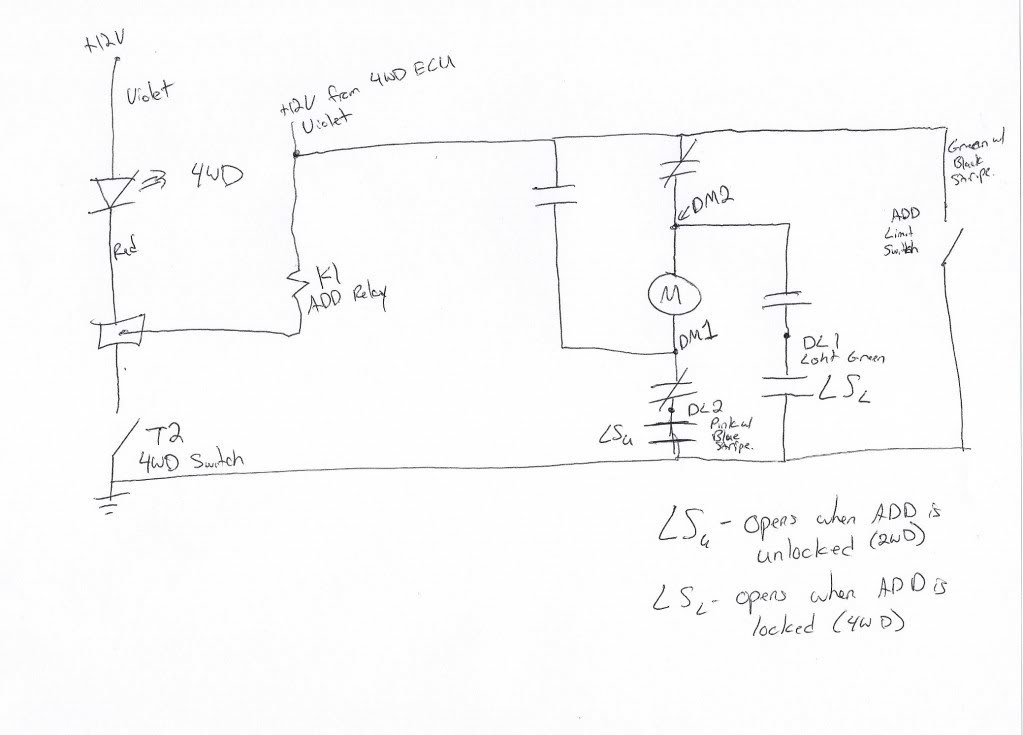 +12V
Violet
4WD
Red
T2
4WD Switch
+12V from 4WD ECU
Violet
K1
ADD Relay
DM2
M
DM1
DL2
Pink w/
Blue
Stripe.
LSu
DL1
Light Green
LSL
Green w/
Black
Stripe.
ADD
Limit
Switch
LSu - opens when ADD is
unlocked (2WD)
LSL - opens when ADD is
locked (4WD)